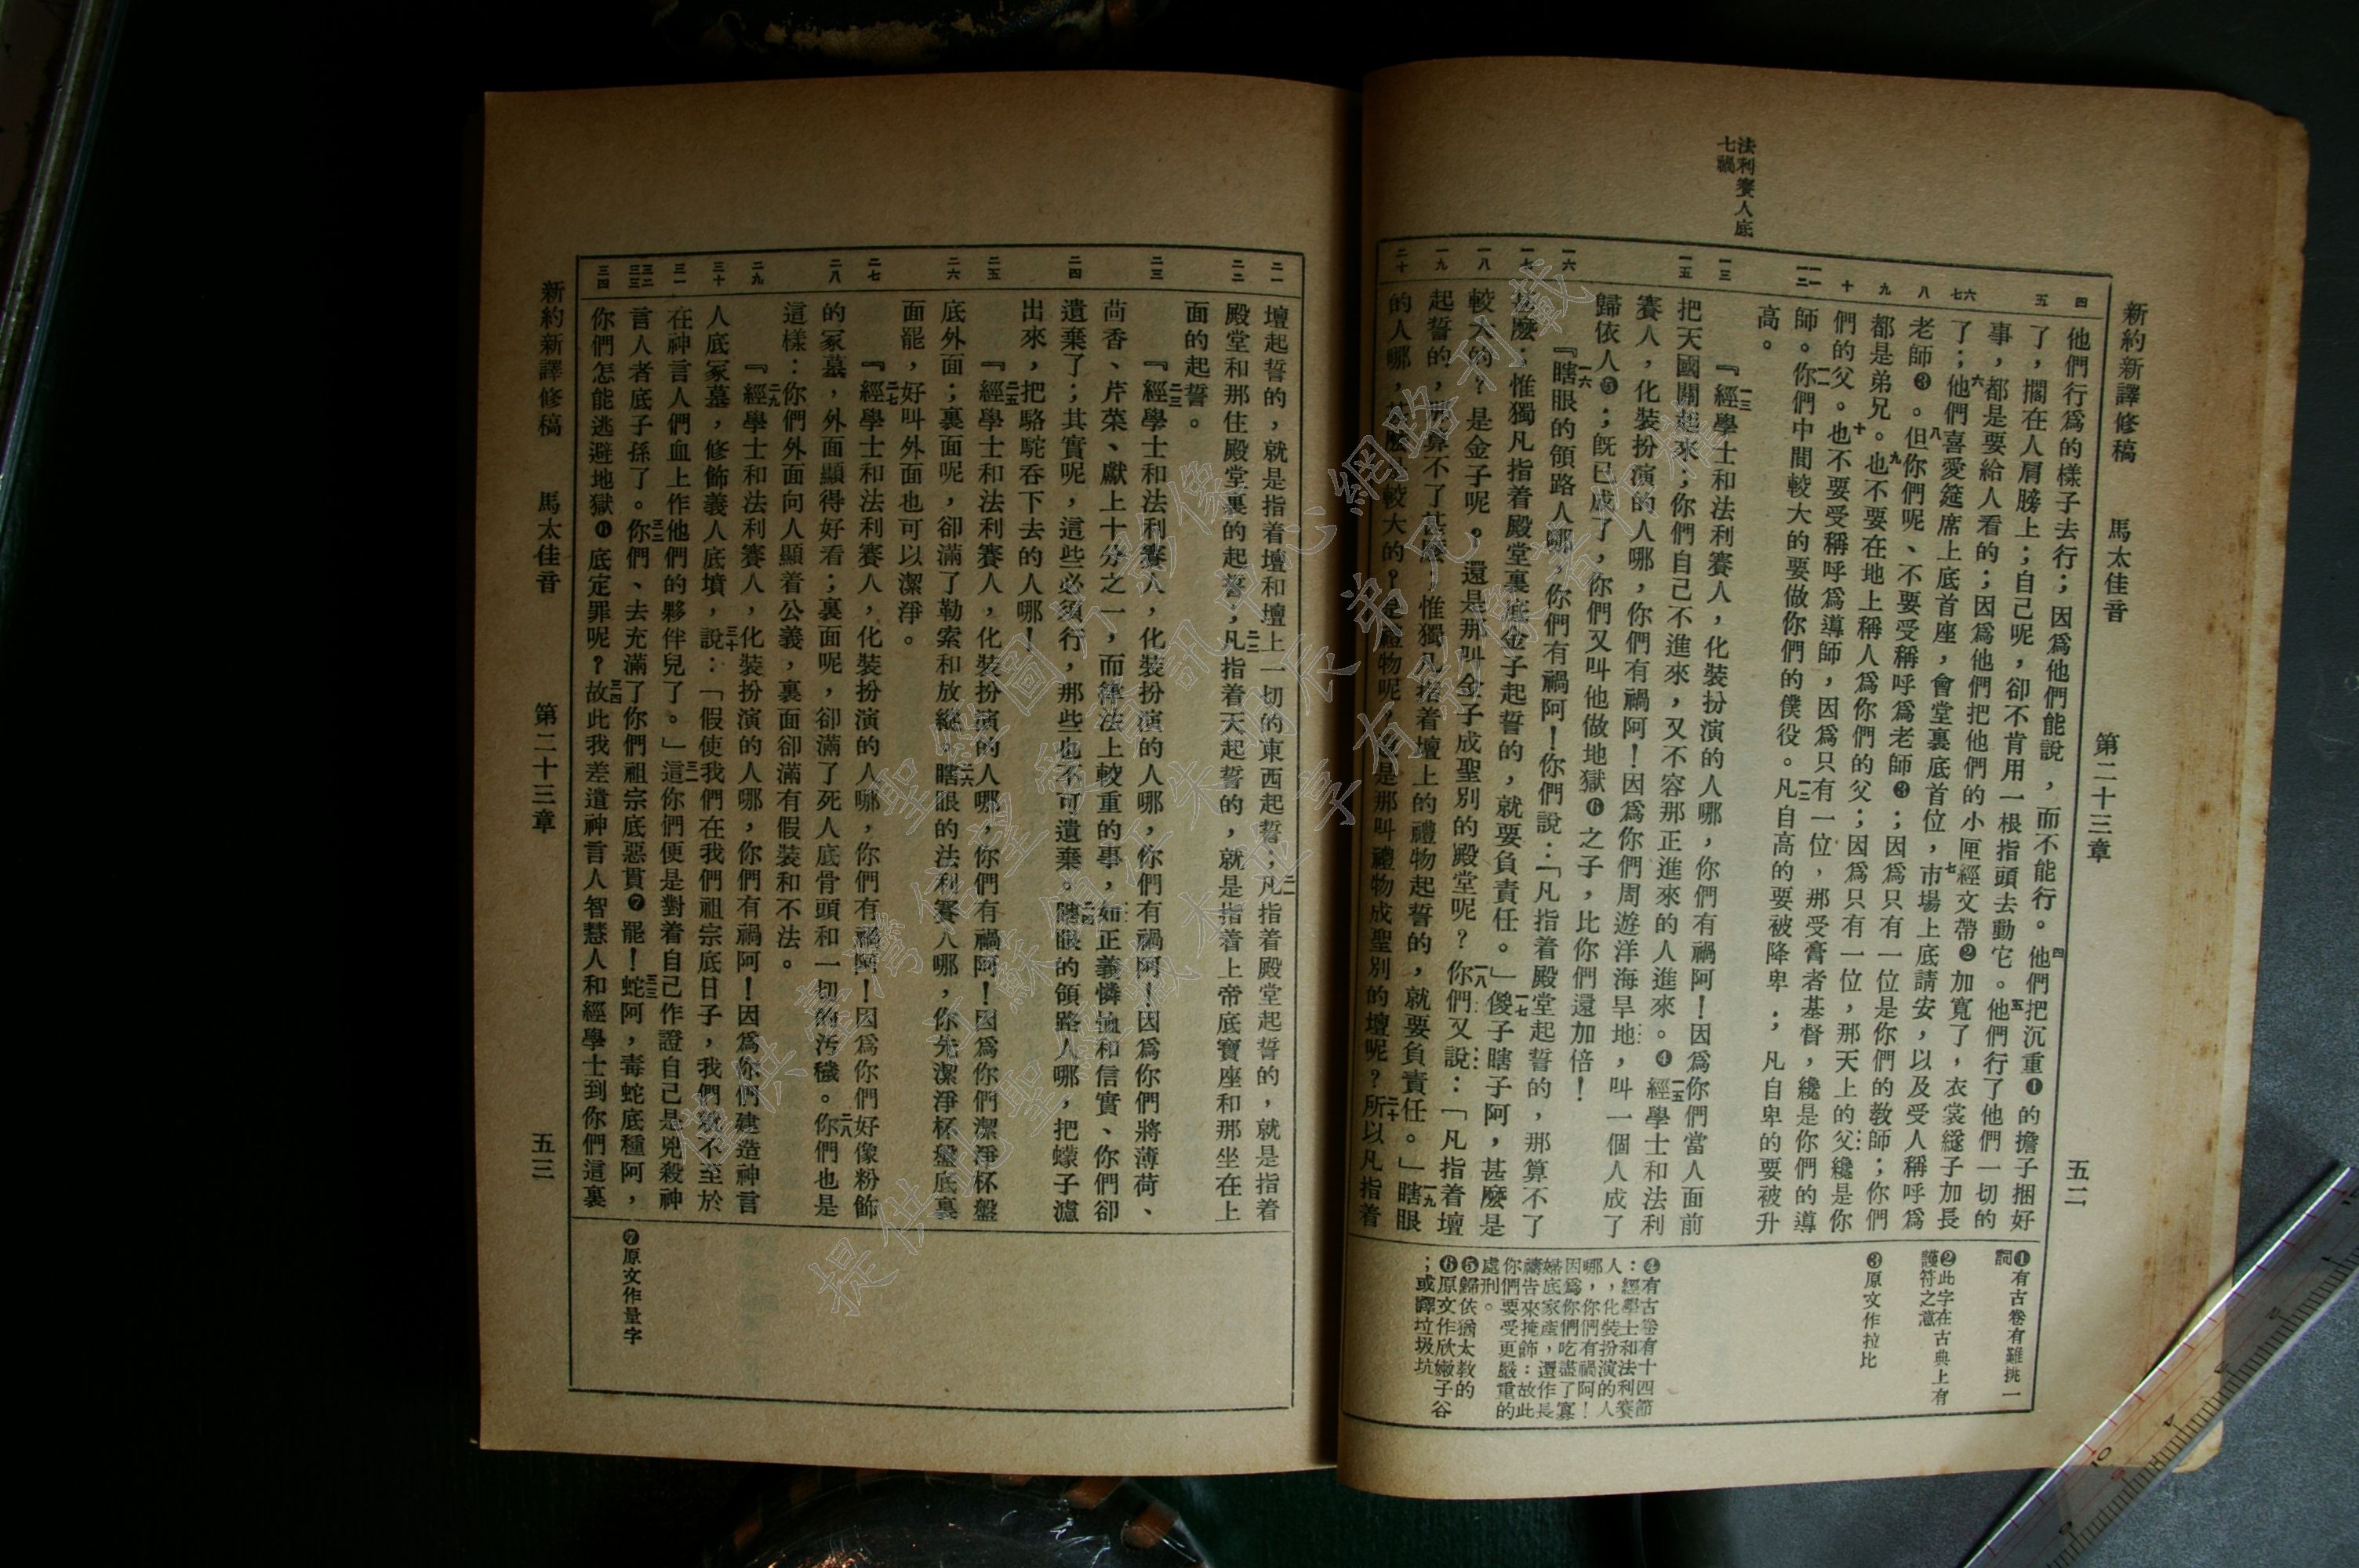 新約新譯修稿　馬太佳音　第二十三章　五二
法利賽人底
七禍
四
五
六七
八
九
十
一一
一二
一三
一五
一六
一七
一八
一九
二十
他們行爲的樣子去行；因爲他們能說，而不能行。四他們把沉重❶的擔子捆好
了，擱在人肩膀上；自己呢，卻不肯用一根指頭去動它。五他們行了他們一切的
事，都是要給人看的；因爲他們把他們的小匣經文帶❷加寬了，衣裳繸子加長
了；六他們喜愛筵席上底首座，會堂裏底首位，七市場上底請安，以及受人稱呼爲
老師❸。八但你們呢、不要受稱呼爲老師❸；因爲只有一位是你們的教師；你們
都是弟兄。九也不要在地上稱人爲你們的父；因爲只有一位，那天上的父纔是你
們的父。十也不要受稱呼爲導師，因爲只有一位，那受膏者基督，纔是你們的導
師。一一你們中間較大的要做你們的僕役。一二凡自高的要被降卑；凡自卑的要被升
高。
『一三經學士和法利賽人，化裝扮演的人哪，你們有禍阿！因爲你們當人面前
把天國關起來；你們自己不進來，又不容那正進來的人進來。❹一五經學士和法利
賽人，化裝扮演的人哪，你們有禍阿！因爲你們周遊洋海旱地，叫一個人成了
歸依人❺；旣已成了，你們又叫他做地獄❻之子，比你們還加倍！
『一六瞎眼的領路人哪，你們有禍阿！你們說：「凡指着殿堂起誓的，那算不了
甚麼；惟獨凡指着殿堂裏底金子起誓的，就要負責任。」一七傻子瞎子阿，甚麼是
較大的？是金子呢。還是那叫金子成聖別的殿堂呢？一八你們又說：「凡指着壇
起誓的，那算不了甚麼；惟獨凡指着壇上的禮物起誓的，就要負責任。」一九瞎眼
的人哪，甚麼是較大的？是禮物呢，還是那叫禮物成聖別的壇呢？二十所以凡指着
❶有古卷有難挑一
詞
❷此字在古典上有
護符之意
❸原文作拉比
❹有古卷有十四節
：經學士和法利賽
人，化裝扮演的人
哪，你們有禍阿！
因爲你們吃盡了寡
婦底家產，還作長
禱告來掩飾：故此
你們要受更嚴重的
處刑。
❺歸依猶太教的
❻原文作欣嫩子谷
；或譯垃圾坑
二一
二二
二三
二四
二五
二六
二七
二八
二九
三十
三一
三二
三三
三四
壇起誓的，就是指着壇和壇上一切的東西起誓；二一凡指着殿堂起誓的，就是指着
殿堂和那住殿堂裏的起誓；二二凡指着天起誓的，就是指着上帝底寶座和那坐在上
面的起誓。
『二三經學士和法利賽人，化裝扮演的人哪，你們有禍阿！因爲你們將薄荷、
茴香、芹菜、獻上十分之一，而律法上較重的事，如正義憐恤和信實、你們卻
遺棄了；其實呢，這些必須行，那些也不可遺棄。二四瞎眼的領路人哪，把蠓子濾
出來，把駱駝吞下去的人哪！
『二五經學士和法利賽人，化裝扮演的人哪，你們有禍阿！因爲你們潔淨杯盤
底外面；裏面呢，卻滿了勒索和放縱。二六瞎眼的法利賽人哪，你先潔淨杯盤底裏
面罷，好叫外面也可以潔淨。
『二七經學士和法利賽人，化裝扮演的人哪，你們有禍阿！因爲你們好像粉飾
的冢墓，外面顯得好看；裏面呢，卻滿了死人底骨頭和一切的污穢。二八你們也是
這樣：你們外面向人顯着公義，裏面卻滿有假裝和不法。
『二九經學士和法利賽人，化裝扮演的人哪，你們有禍阿！因爲你們建造神言
人底冢墓，修飾義人底墳，三十說：「假使我們在我們祖宗底日子，我們就不至於
在神言人們血上作他們的夥伴兒了。」三一這你們便是對着自己作證自己是兇殺神
言人者底子孫了。三二你們、去充滿了你們祖宗底惡貫❼罷！三三蛇阿，毒蛇底種阿，
你們怎能逃避地獄❻底定罪呢？三四故此我差遣神言人智慧人和經學士到你們這裏
❼原文作量字
新約新譯修稿　馬太佳音　第二十三章　五三